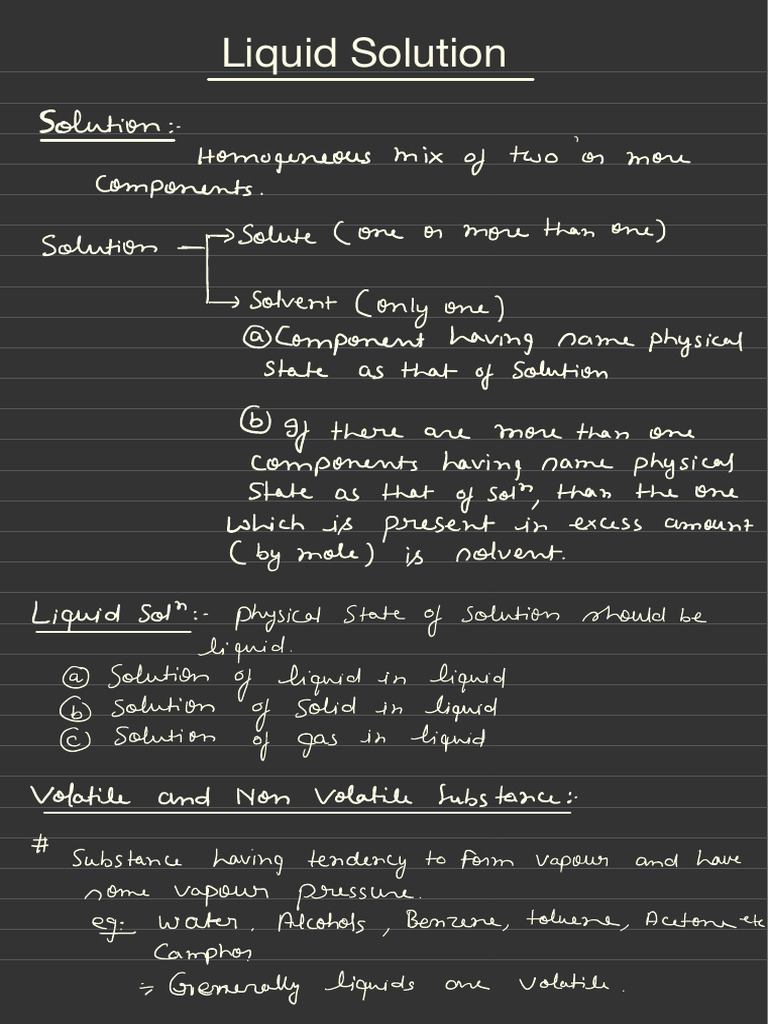 Liquid Solution
Solution:-
Homogeneous mix of two or more
Components.
Solution → Solute (one or more than one)
→ Solvent (only one)
ⓐ Component having same physical
state as that of solution
ⓑ If there are more than one
components having same physical
state as that of solⁿ, than the one
which is present in excess amount
(by mole) is solvent.
Liquid Solⁿ:- Physical State of solution should be
liquid.
ⓐ Solution of liquid in liquid
ⓑ Solution of solid in liquid
ⓒ Solution of gas in liquid
Volatile and Non Volatile Substance:-
#
Substance having tendency to form vapour and have
some vapour pressure.
eg:- Water, Alcohols, Benzene, toluene, Acetone etc
Camphor
⇒ Generally liquids are volatile.